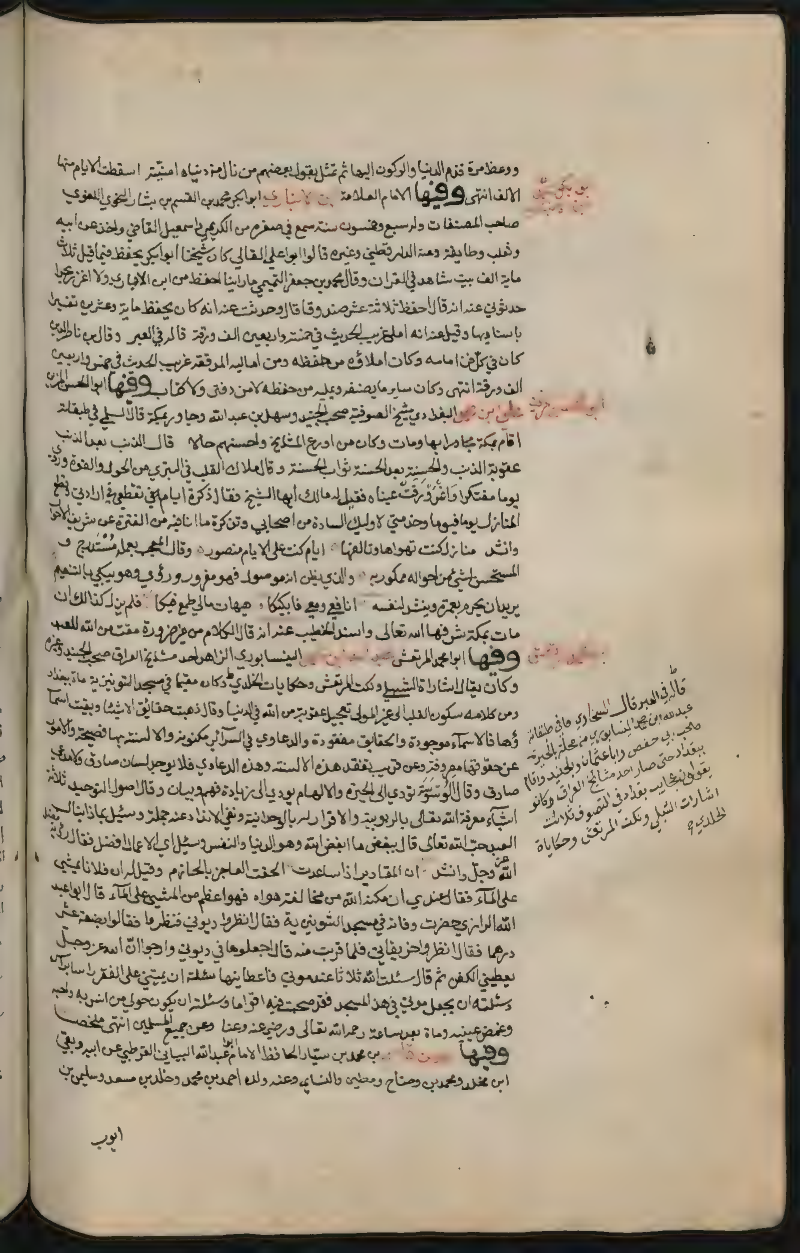 ووعظ مرة فذم الدنيا والركون اليها ثم تمثل بقول بعضهم من نال من دنياه امنية اسقطت الايام منها
الالف انتهى وفيها الامام العلامة بن الانباري ابو بكر محمد بن القسم بن بشار النحوي اللغوي
صاحب المصنفات وله سبع وخمسون سنة سمع في صغره من الكديمي واسمعيل القاضي واخذ عن ابيه
وثعلب وطايفة وعنه الدارقطني وغيره قال ابو علي القالي كان شيخنا ابو بكر يحفظ فيما قيل ثلاث
ماية الف بيت شاهد في القران وقال محمد بن جعفر التميمي ما راينا احفظ من ابن الانباري ولا اغزر بحرا
حدثوني عنه انه قال احفظ ثلاثة عشر صندوقا قال وحدثت عنه انه كان يحفظ ماية وعشرين تفسيرا
باسانيدها وقيل عنه انه املى غريب الحديث في خمسة واربعين الف ورقة قاله في العبر وقال بن ناصر الدين
كان في كل فن امامه وكان املاؤه من حفظه ومن اماليه المدققة غريب الحديث في خمس واربعين
الف ورقة انتهى وكان ساير ما يصنفه ويمليه من حفظه لا من دفتر ولا كتاب وفيها ابو الحسن المزين
علي بن محمد البغدادي شيخ الصوفية صحب الجنيد وسهل بن عبد الله وجاور بمكة قال السلمي في طبقاته
اقام بمكة مجاورا بها ومات وكان من اورع المشايخ واحسنهم حالا قال الذنب بعد الذنب
عقوبة الذنب والحسنة بعد الحسنة ثواب الحسنة وقال ملاك القلب في التبري من الحول والقوة ورؤي
يوما متفكرا واغرورقت عيناه فقيل له مالك ايها الشيخ فقال ذكرت ايام تقطعي في ارادتي وقطع
المنازل يوما فيوما وخدمتي لاوليك السادة من اصحابي وتذكرت ما انا فيه من الفترة عن شريف الاحوال
وانشد منازل كنت تهواها وتالفها ايام كنت على الايام منصورا وقال المعجب بعمله مستدرج و
المستحسن لشيء من احواله ممكور به والذي يظن انه موصول فهو مغرور ورؤي وهو يبكي بالتنعيم
يريد ان يحرم بعمرة وينشد لنفسه انافعي دمعي فابكيكا هيهات مالي طمع فيكا فلم يزل كذلك ان
مات بمكة شرفها الله تعالى واسند الخطيب عنه انه قال الكلام من غير ضرورة مقت من الله للعبد
وفيها ابو محمد المرتعش عبد الله بن محمد النيسابوري الزاهد احد مشايخ العراق صحب الجنيد وغيره
وكان يقال اشارات الشبلي ونكت المرتعش وحكايات الخلدي وكان مقيما في مسجد الشونيزية مات ببغداد
ومن كلامه سكون القلب الى غير المولى تعجيل عقوبة من الله في الدنيا وقال ذهبت حقائق الاشيا وبقيت اسما
وها فالاسماء موجودة والحقايق مفقودة والدعاوي في السرائر مكنونة والالسنة بها فصيحة والامور
عن حقوقها مصروفة وعن قريب يفقد هذه الالسنة وهذه الدعاوي فلا يوجد لسان صادق ولا مدعي
صادق وقال الوسوسة تؤدي الى الحيرة والالهام يؤدي الى زيادة فهم وبيان وقال اصول التوحيد ثلاثة
اشياء معرفة الله تعالى بالربوبية والاقرار له بالوحدانية ونفي الانداد عنه جملة وسئل بماذا ينال
العبد حب الله تعالى قال ببغض ما ابغض الله وهو الدنيا والنفس وسئل اي الاعمال افضل فقال رؤية فضل
الله عز وجل وانشد ان المقادير اذا ساعدت الحقت العاجز بالحازم وقيل له ان فلانا يمشي
على الماء فقال عندي ان مكنه الله من مخالفة هواه فهو اعظم من المشي على الماء قال ابو عبد
الله الرازي حضرت وفاته في مسجد الشونيزية فقال انظروا ديوني فنظروا فقالوا بضعة عشر
درهما فقال انظروا خريقاتي فلما قربت منه قال اجعلوها في ديوني وارجو ان الله عز وجل
يعطيني الكفن ثم قال سئلت الله ثلاثا عند موتي فاعطانيها سئلته ان يميتني على الفقر راسا براس
وسئلته ان يجعل موتي في هذا المسجد فقد صحبت فيه اقواما وسئلته ان يكون حولي من انس به واحبه
وغمض عينيه ومات بعد ساعة رحمه الله تعالى ورضي عنه وعنا وعن جميع المسلمين انتهى ملخصا
وفيها بن محمد بن سيار الحافظ الامام ابو عبد الله البياني القرطبي عن ابيه وبقي
ابن مخلد ومحمد بن وضاح ومطين والنسايي وعنه ولده احمد بن محمد وخالد بن مسعد وسليمن بن
ايوب
ابو الحسن
قال في العبر قال السخاوي في طبقاته
عبد الله بن محمد النيسابوري من محلة الحيرة
صحب ابي حفص وابا عثمان والجنيد واقام
ببغداد حتى صار احد مشايخ العراق وكانو
يقولون عجايب بغداد في التصوف ثلاث
اشارات الشبلي ونكت المرتعش وحكايات
الخلدي